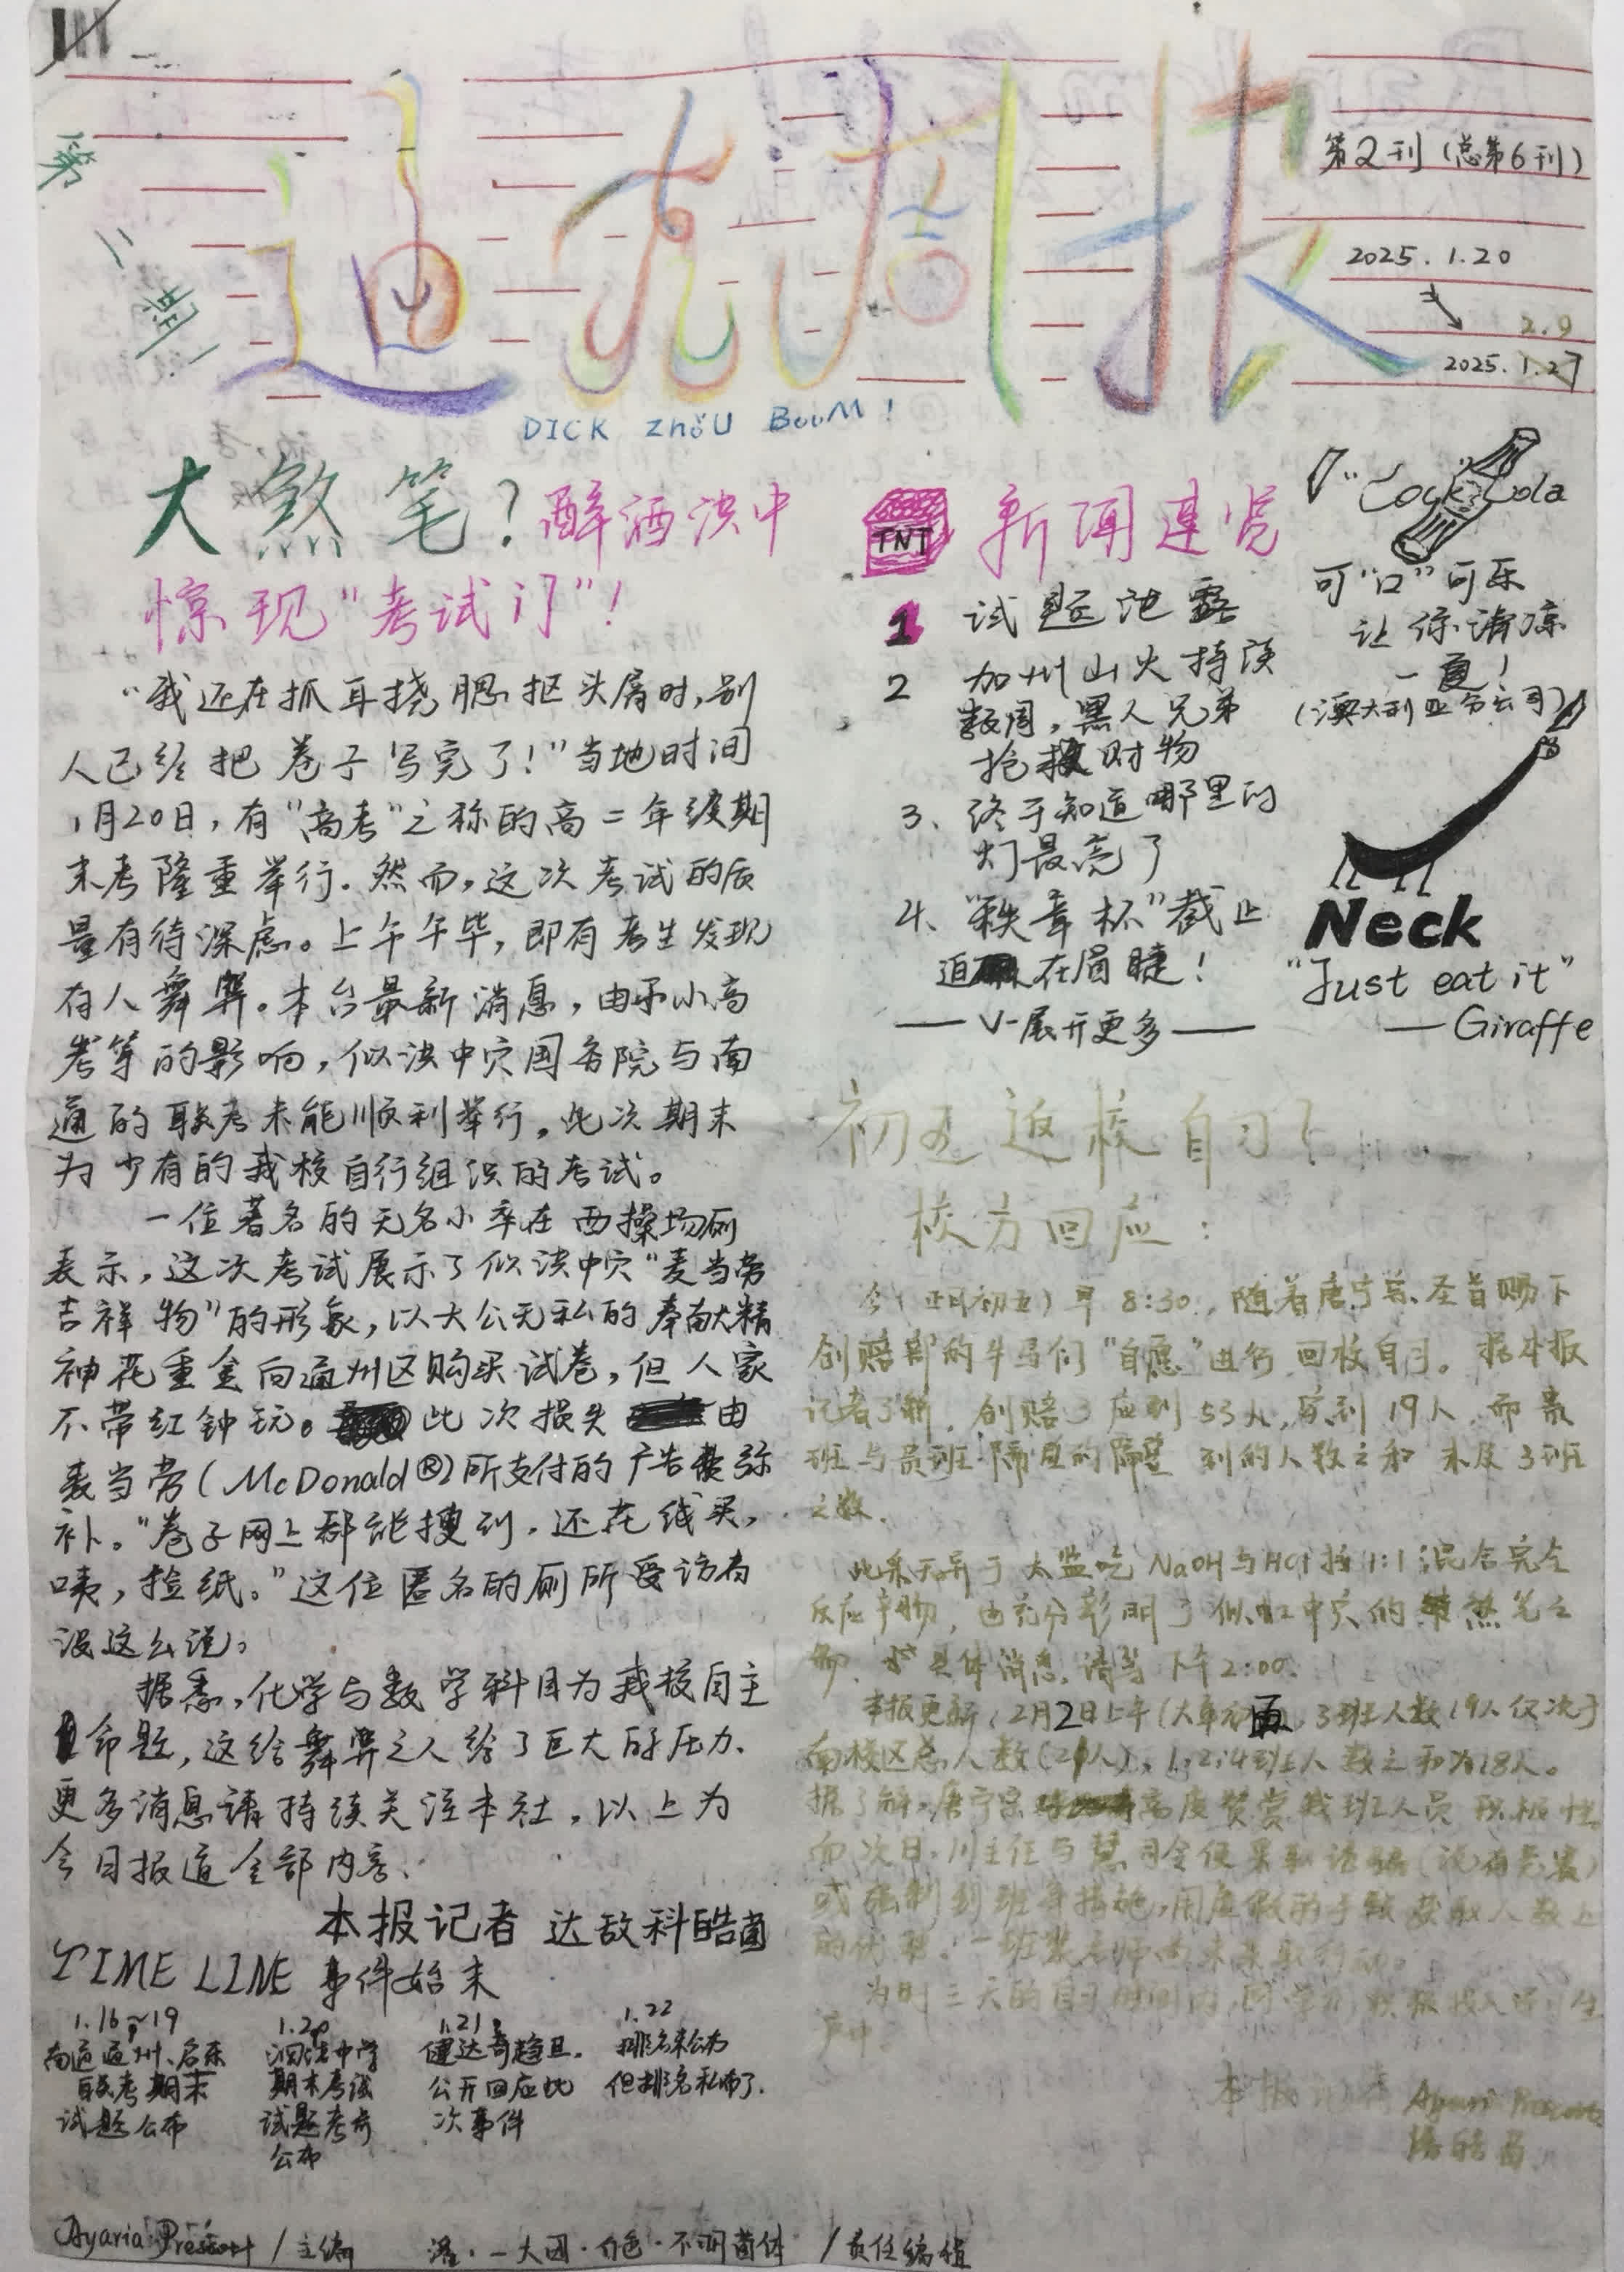 第二期
迪克周报
第2刊(总第6刊)
2025.1.20
2.9
2025.1.27
DICK ZhōU BooM!
大煞笔?醉酒泱中
惊现"考试门"!
"我还在抓耳挠腮抠头屑时,别
人已经把卷子写完了!"当地时间
1月20日,有"高考"之称的高二年级期
末考隆重举行.然而,这次考试的质
量有待深虑。上午午毕,即有考生发现
有人舞弊。本台最新消息,由于小高
考等的影响,似泱中穴国务院与南
通的联考未能顺利举行,此次期末
为少有的我校自行组织的考试。
一位著名的无名小卒在西操场厕
表示,这次考试展示了似泱中穴"麦当劳
吉祥物"的形象,以大公无私的奉献精
神花重金向通州区购买试卷,但人家
不带红钟玩。此次损失由
麦当劳(McDonald®)所支付的广告费弥
补。"卷子网上都能搜到,还花钱买,
咦,捡纸。"这位匿名的厕所受访者
没这么说。
据悉,化学与数学科目为我校自主
命题,这给舞弊之人给了巨大的压力.
更多消息请持续关注本社,以上为
今日报道全部内容.
本报记者 达敌科皓菌
TIME LINE 事件始末
1.16~19
南通通州、启东
联考期末
试题公布
1.20
泗泱中学
期末考试
试题考卉
公布
1.21
健达奇趋旦.
公开回应此
次事件
1.22
排名未公布
但排名私布了.
TNT 新闻速览
1 试题泄露
2 加州山火持续
数周,黑人兄弟
抢救财物
3、终于知道哪里的
灯最亮了
4、"秩章杯"截止
迫在眉睫!
——V-展开更多——
"Cock" Cola
可"口"可乐
让你清凉
一夏!
(澳大利亚分公司)
Neck
"Just eat it"
—Giraffe
初五返校自习?
校方回应:
今(正月初五)早8:30,随着唐宁总圣旨赐下
创赔部的牛马们"自愿"进行回校自习。据本报
记者了解,创赔了应到53人,实到19人,而最
班与员班隔直的隔壁到的人数之和未及3班
之数.
此系无异于太监吃NaOH与HCl按1:1混合完全
反应产物,也充分彰明了似中穴的煞笔之
具体消息,请等下午2:00.
本报更新,2月2日上午(大年初五),3班人数19人仅次于
南校区总人数(21人),1,2,4班人数之和为18人。
据了解,唐宁总高度赞赏我班人员积极性
而次日,川主任与慧司令便采取
或强制到班等措施,用虚假的手段获取人数上
的优势.一班裴老师尚未采取行动。
为时三天的自习时间内,同学们积极投入学习生
产中.
本报记者 Ayari
Ayaria Prescott/主编
/责任编辑